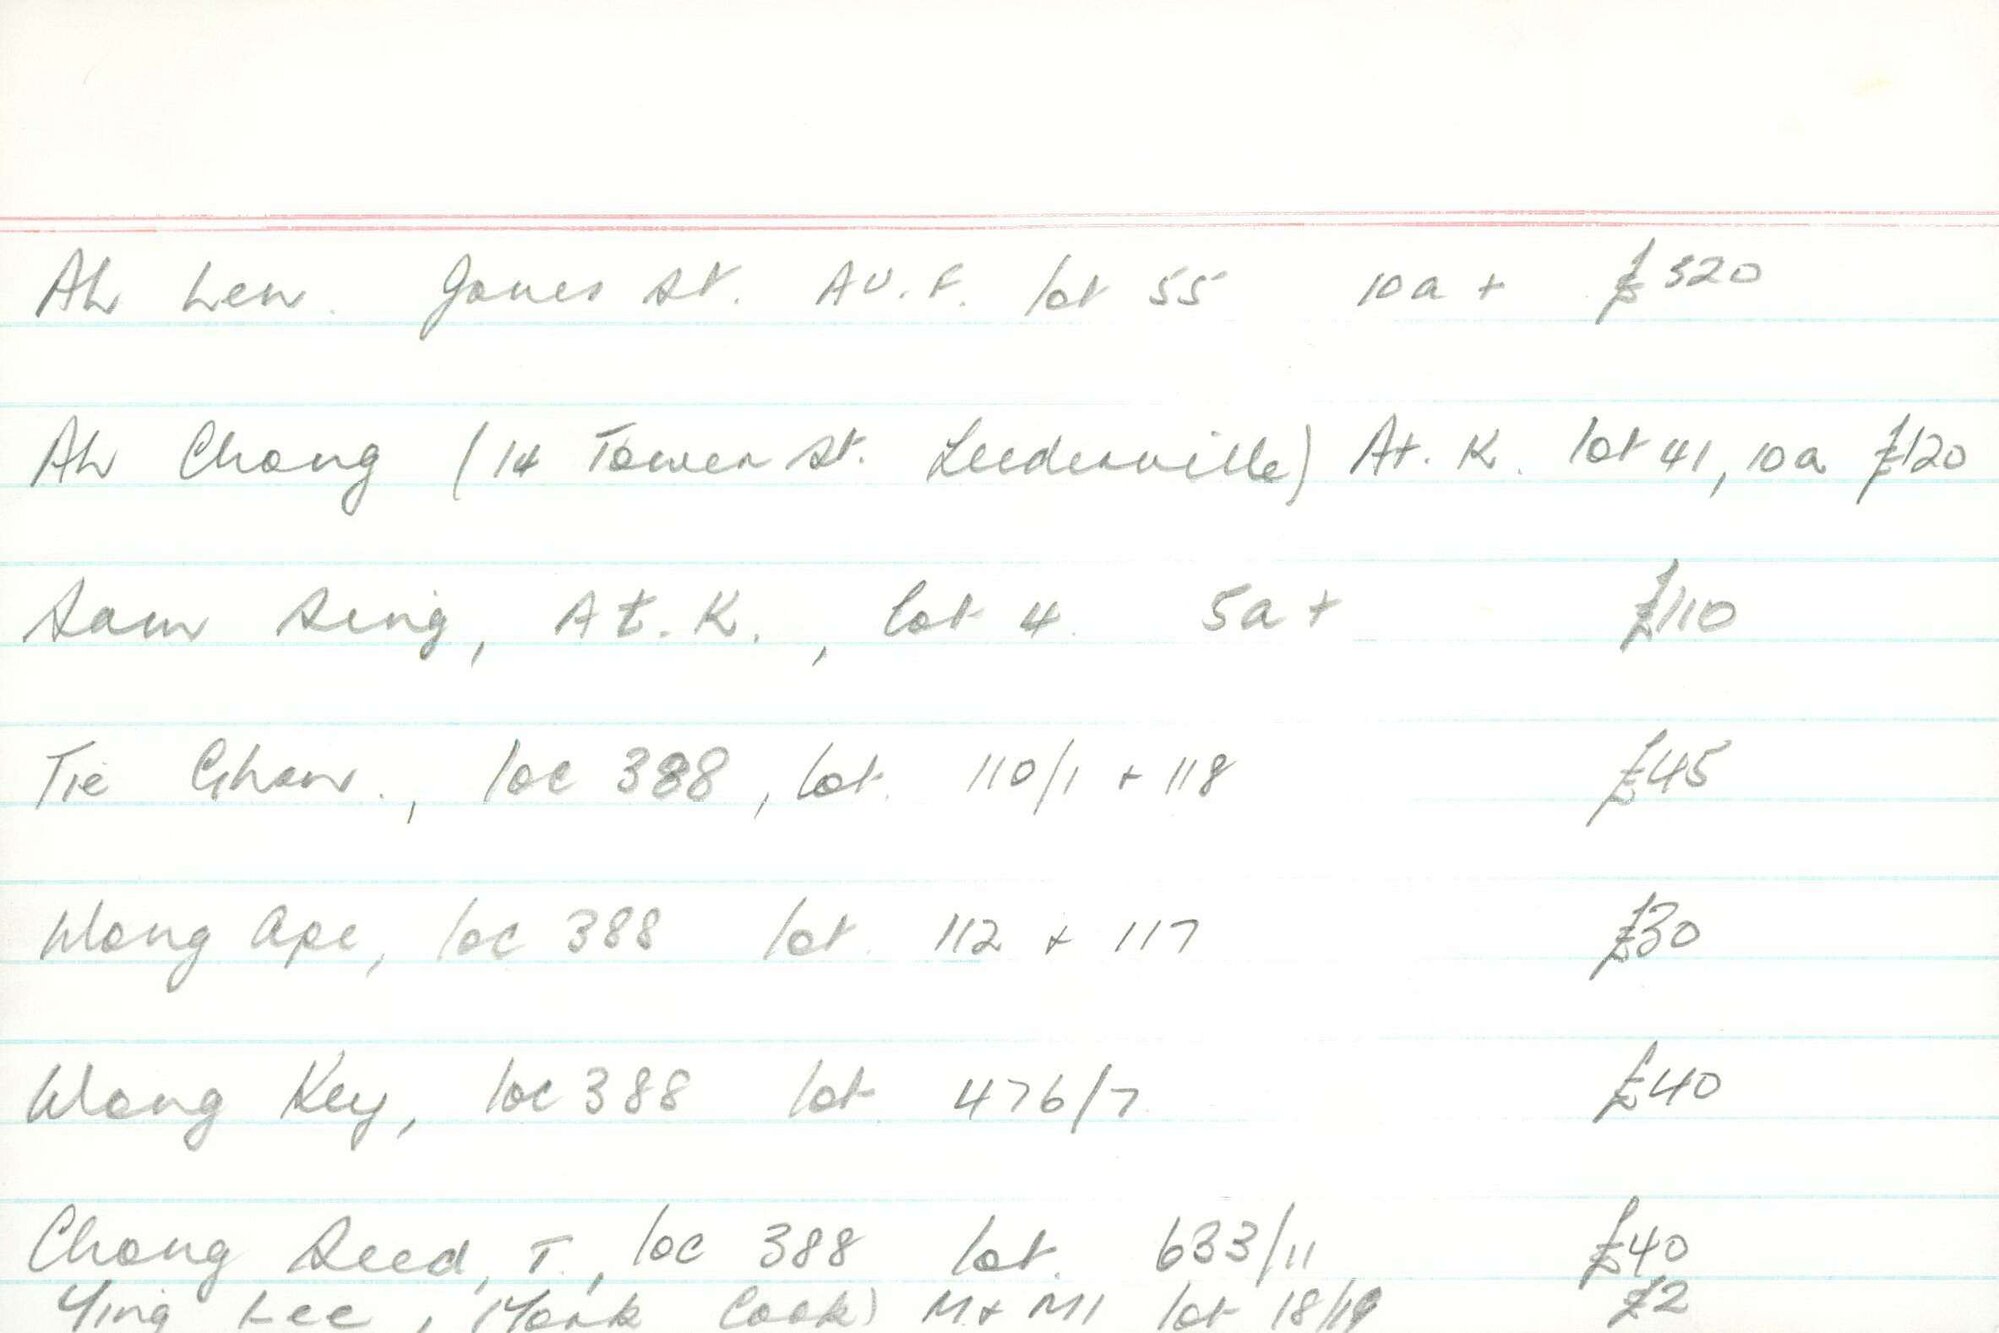 Ah Lew. Jones St. AU. F. lot 55 10a + £320
Ah Chong (14 Tower St. Leederville) At. K. lot 41, 10a £120
Sam Sing, At. K., lot 4 5a + £110
Tie Ghow., loc 388, lot. 110/1 + 118 £45
Wong Ape, loc 388 lot. 112 + 117 £30
Wong Key, loc 388 lot 476/7 £40
Chong Seed, T., loc 388 lot. 633/11 £40
Ying Lee, (York Cook) lot 18/19 £2